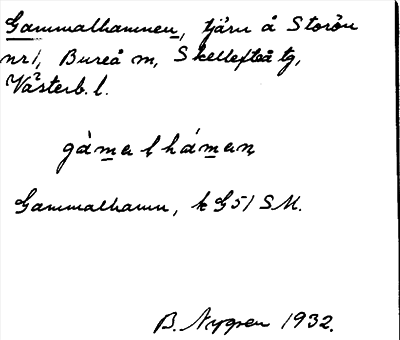 Gammalhamnen, tjärn å Storön
nr 1, Bureå sn, Skellefteå tg,
Västerb. l.
gàmalhámen
Gammalhamn, k G51 SM.
B. Nygren 1932.